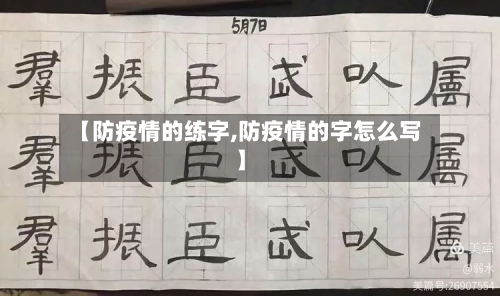 5月7日
羣振臣武以属
【防疫情的练字,防疫情的字怎么写
】
羣振臣武以属
羣振臣武以属
美篇
@弱水
美篇号:26907554